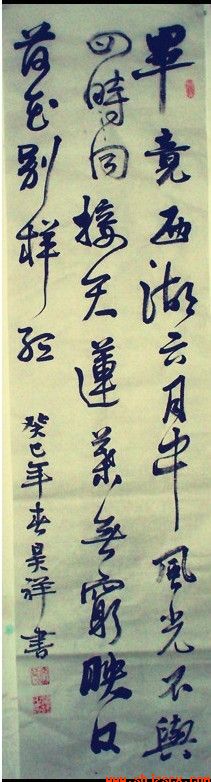 畢竟西湖六月中風光不與
四時同接天蓮葉無窮映日
荷花別樣紅
癸巳年春吳祥書